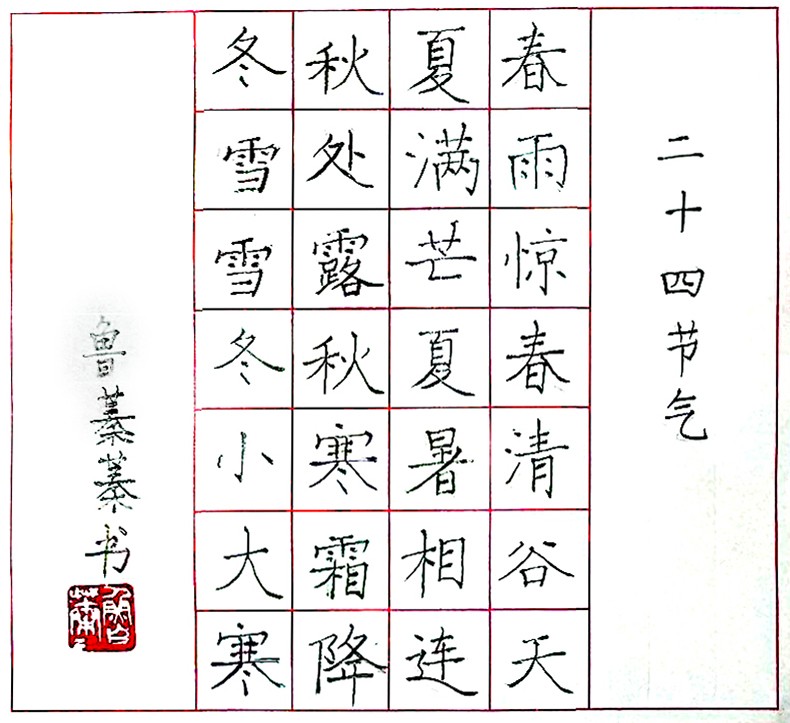 二十四节气
春雨惊春清谷天
夏满芒夏暑相连
秋处露秋寒霜降
冬雪雪冬小大寒
鲁蓁蓁书